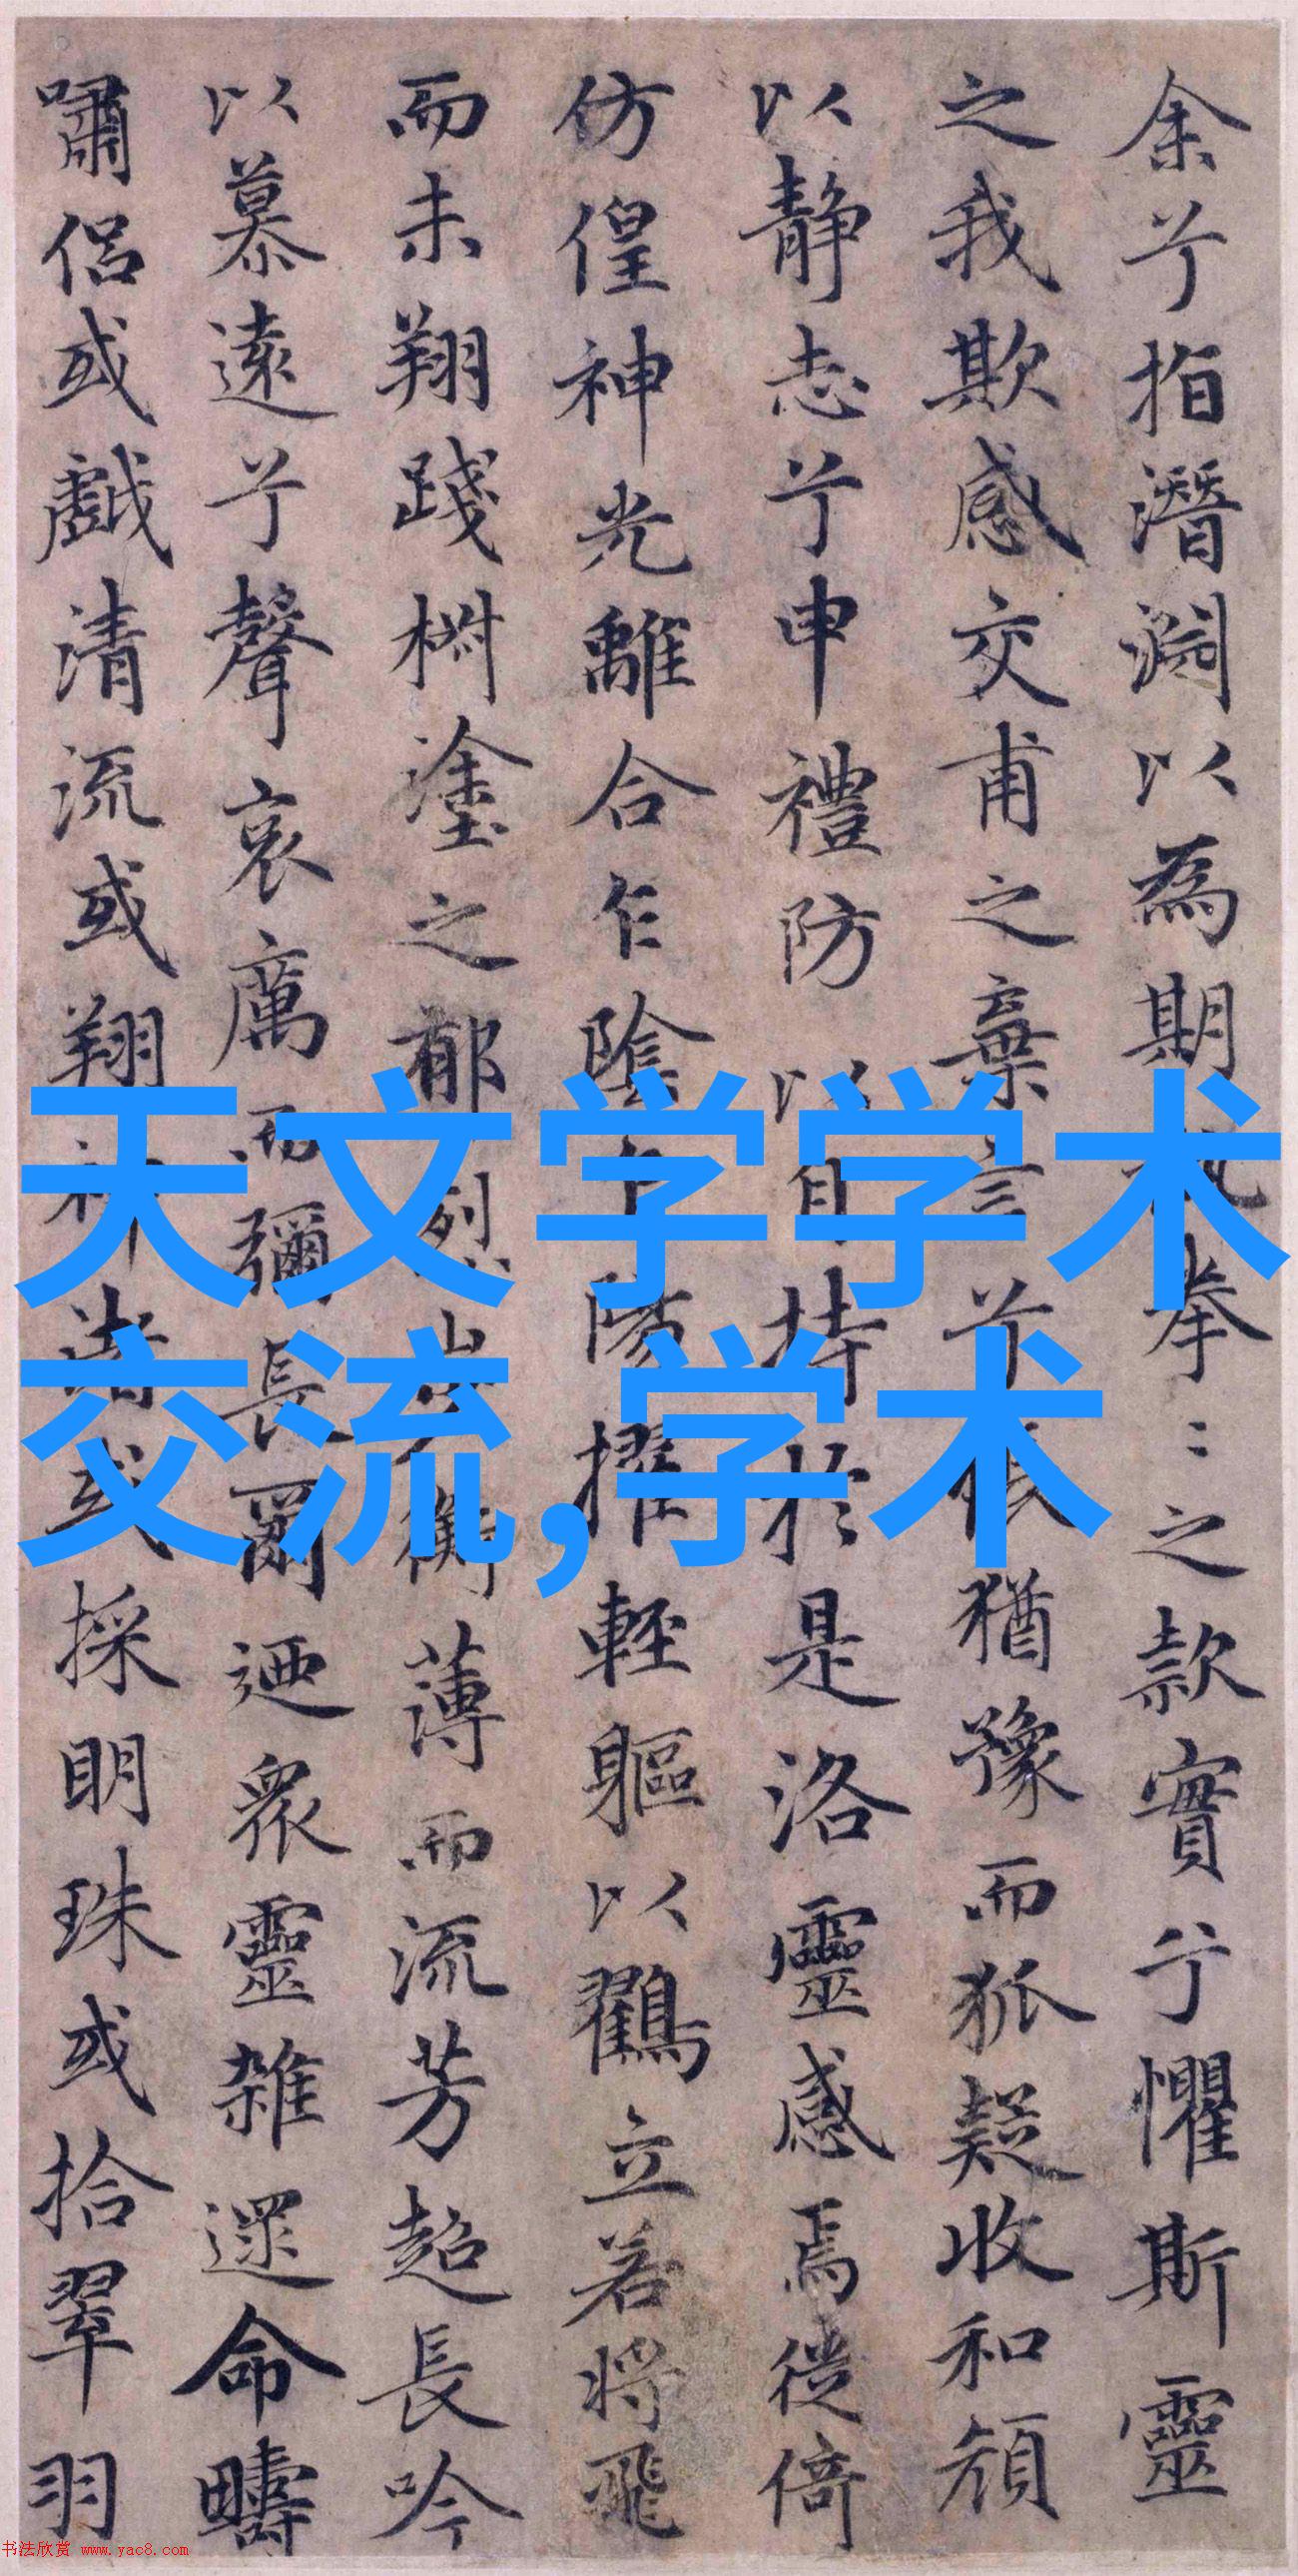 余兮指潛淵以為期拳〻之款實兮懼斯靈
之我欺感交甫之棄言兮猶豫而狐疑收和顏
以靜志兮申禮防以自持於是洛靈感焉徙倚
仿偟神光離合乍陰乍陽擢輕軀以鶴立若將飛
而未翔踐椒塗之郁烈步衡薄而流芳超長吟
以慕遠兮聲哀厲而彌長爾迺衆靈雜遝命疇
嘯侶或戲清流或翔神渚或採明珠或拾翠羽
天文学学术
交流,学术
书法欣赏 www.yac8.com